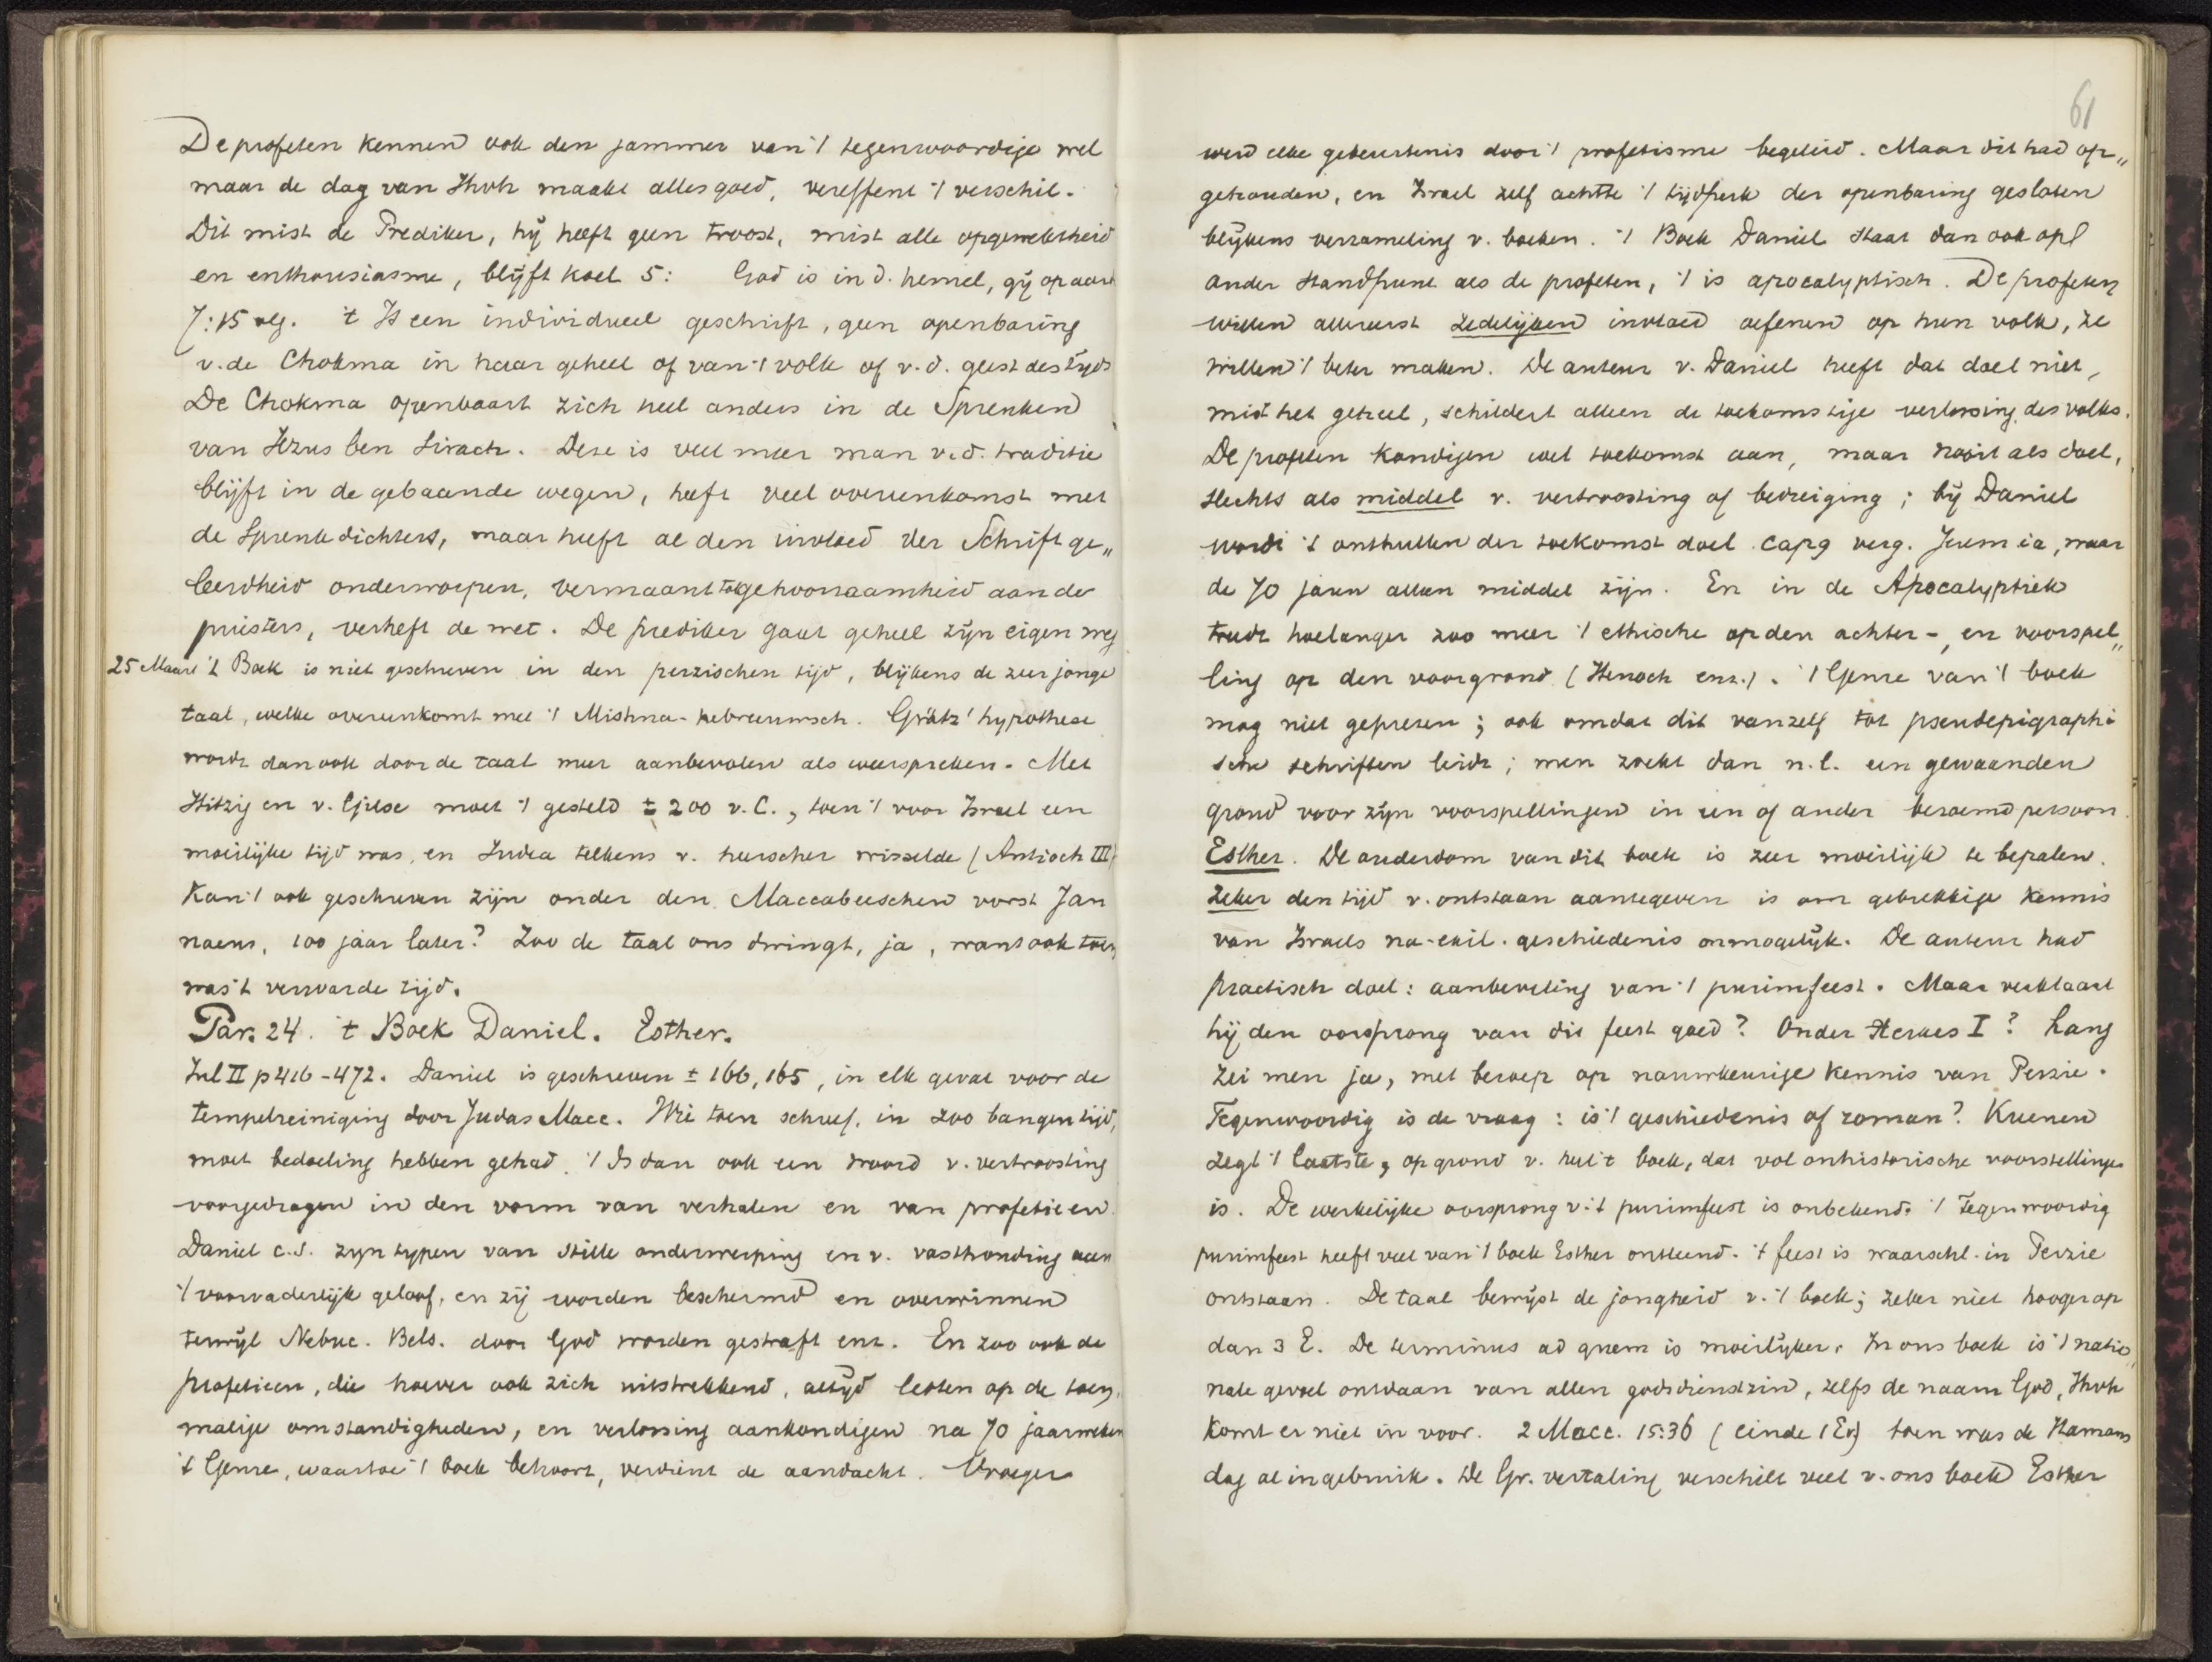 De profeten kennen ook den jammer van 't tegenwoordige wel
maar de dag van Jhvh maakt alles goed, vereffent 't verschil.
Dit mist de Prediker, hij heeft geen troost, mist alle opgewektheid
en enthousiasme, blijft koel 5: God is in d. hemel, gij op aard
7:15 vlg. 't Is een individueel geschrift, geen openbaring
v. de Chokma in haar geheel of van 't volk of v. d. geest des tijds
De Chokma openbaart zich heel anders in de Spreuken
van Jezus ben Sirach. Deze is veel meer man v. d. traditie
blijft in de gebaande wegen, heeft veel overeenkomst met
de Spreukdichters, maar heeft al den invloed der Schriftge„
leerdheid onderworpen, vermaant tot gehoorzaamheid aan de
priesters, verheft de wet. De prediker gaat geheel zijn eigen weg
25 Maart 't Boek is niet geschreven in den perzischen tijd, blijkens de zeer jonge
taal, welke overeenkomt met 't Mishna-hebreeuwsch. Grätz' hypothese
wordt dan ook door de taal meer aanbevolen als weersproken. Met
Hitzig en v. Gilse moet 't gesteld ± 200 v. C., toen 't voor Israel een
moeilijke tijd was, en Judea telkens v. heerscher wisselde (Antioch III)
Kan 't ook geschreven zijn onder den Maccabeeschen vorst Jan
naeus, 100 jaar later? Zoo de taal ons dwingt, ja, want ook toen
was 't verwarde tijd.
Par. 24. 't Boek Daniel. Esther.
Inl II p 416-472. Daniel is geschreven ± 166, 165, in elk geval voor de
tempelreiniging door Judas Macc. Wie toen schreef, in zoo bangen tijd,
moet bedoeling hebben gehad. 't Is dan ook een woord v. vertroosting
voorgedragen in den vorm van verhalen en van profetieen.
Daniel c.s. zijn typen van stille onderwerping en v. vasthouding aan
't voorvaderlijk geloof, en zij worden beschermd en overwinnen
terwijl Nebuc. Bels. door God worden gestraft enz. En zoo ook de
profetieen, die hoever ook zich uitstrekkend, altijd letten op de toen„
malige omstandigheden, en verlossing aankondigen na 70 jaarweken
't Genre, waartoe 't boek behoort, verdient de aandacht. Vroeger
61
werd elke gebeurtenis door 't profetisme begeleid. Maar dit had op„
gehouden, en Israel zelf achtte 't tijdperk der openbaring gesloten
blijkens verzameling v. boeken. 't Boek Daniel staat dan ook op
ander standpunt als de profeten, 't is apocalyptisch. De profeten
willen allereerst zedelijken invloed oefenen op hun volk, ze
willen 't beter maken. De auteur v. Daniel heeft dat doel niet,
mist het geheel, schildert alleen de toekomstige verlossing des volks.
De profeten kondigen wel toekomst aan, maar nooit als doel,
slechts als middel v. vertroosting of bedreiging; bij Daniel
wordt 't onthullen der toekomst doel. Cap 9 verg. Jeremia, waar
de 70 jaren alleen middel zijn. En in de Apocalyptiek
treedt hoelanger zoo meer 't ethische op den achter-, en voorspel„
ling op den voorgrond (Henoch enz.). 't Genre van 't boek
mag niet geprezen; ook omdat dit vanzelf tot pseudepigraphi
sche schriften leidt; men zoekt dan n.l. een gewaanden
grond voor zijn voorspellingen in een of ander beroemd persoon.
Esther. De ouderdom van dit boek is zeer moeilijk te bepalen.
Zeker den tijd v. ontstaan aantegeven is om gebrekkige kennis
van Israels na-exil. geschiedenis onmogelijk. De auteur had
practisch doel: aanbeveling van 't purimfeest. Maar verklaart
hij den oorsprong van dit feest goed? Onder Xerxes I? Lang
zei men ja, met beroep op nauwkeurige kennis van Perzie.
Tegenwoordig is de vraag: is 't geschiedenis of roman? Kuenen
zegt 't laatste, op grond v. heel 't boek, dat vol onhistorische voorstellingen
is. De werkelijke oorsprong v. 't purimfeest is onbekend. 't Tegenwoordig
purimfeest heeft veel van 't boek Esther ontleend. 't feest is waarschl. in Perzie
ontstaan. De taal bewijst de jongheid v. 't boek; zeker niet hooger op
dan 3 E. De terminus ad quem is moeilijker. In ons boek is 't natio„
nale gevoel ontdaan van allen godsdienstzin, zelfs de naam God, Jhvh
komt er niet in voor. 2 Macc. 15:36 (einde 1 Ev) toen was de Hamans
dag al in gebruik. De Gr. vertaling verschilt veel v. ons boek Esther